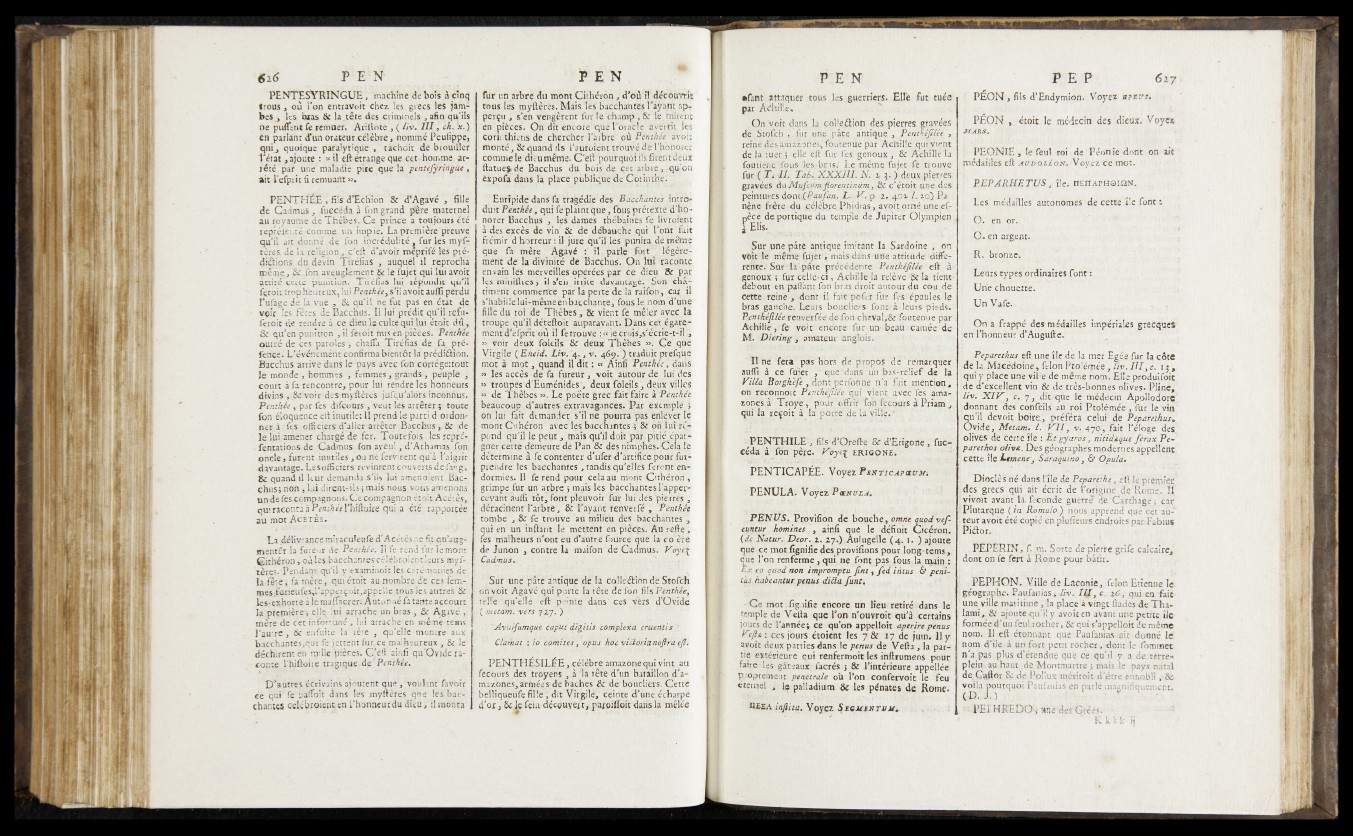 626 PEN PEN
PENTESYRINGUE, machine de bois à cinq
trous, où l'on entravoit chez les grecs les jam-
bes, les bras & la tête des criminels, afin qu'ils
ne puſſent ſe remuer. Ariſtote, (liv. III, ch. x.)
en parlant d'un orateur célèbre, nommé Peuſippe,
qui, quoique paralytique, tachoit de brouiller
l'état, ajoute : » il eſt étrange que cet homme ar-
rêté par une maladie pire que la penteſyringue,
ait l'eſprit ſi remuant ».
PENTHÉE, fils d'Echion & d'Agavé, fille
de Cadmus, ſuccéda à ſon grand père maternel
au royaume de Thèbes. Ce prince a toujours été
repréſenté comme un impie. La première preuve
qu'il ait donné de ſon incrédulité ſur les myſ-
tères de la religion, c'eſt d'avoir mépriſé les pré-
dictions du devin Tiréſias, auquel il reprocha
même, & ſon aveuglement & le ſujet qui lui avoit
attiré cette punition. Tiréſias lui répondit qu'il
ſeroit trop heureux, lui Penthée, s'il avoit auſſi perdu
l'uſage de la vue, & qu'il ne fut pas en état de
voir les fêtes de Bacchus. Il lui prédit qu'il refu-
ſeroit de rendre à ce dieu le culte qui lui étoit dû,
& qu'en punition, il ſeroit mis en pièces. Penthée
outré de ces paroles, chaſſa Tiréſias de ſa pré-
ſence. L'événement confirma bientôt la prédiction.
Bacchus arrive dans le pays avec ſon cortége: tout
le monde, hommes, femmes, grands, peuple,
court à ſa rencontre, pour lui rendre les honneurs
divins, & voir des myſtères juſqu'alors inconnus.
Penthée, par ſes diſcours, veut les arrêter; toute
ſon éloquence eſt inutile: Il prend le parti d'ordon-
ner à ſes officiers d'aller arrêter Bacchus, & de
le lui amener chargé de fer. Toutefois les repré-
ſentations de Cadmus ſon ayeul, d'Athamas ſon
oncle, furent inutiles, ou ne ſervirent qu'à l'aigrir
davantage. Les officiers revinrent couverts de ſang,
& quand il leur demanda s'ils lui amenoient Bac-
chus; non, lui dirent-ils; mais nous vous amenons
un de ſes compagnons. Ce compagnon étoit Acétès,
qui raconta à Penthée l'hiſtoire qui a été rapportée
au mot ACETÈS.
La délivrance miraculeuſe d'Acétès ne fit qu'aug-
menter la fureur de Penthée. Il ſe rend ſur le mont
Cithéron, où les bacchantes célébroient leurs myſ-
tères. Pendant qu'il y examinoit les cérémonies de
la fête, ſa mère, qui étoit au nombre de ces fem-
mes furieuſes, l'apperçoit, appelle tous les autres &
les exhorte à le maſſacrer. Autonoé ſa tante accourt
la première; elle lui arrache un bras, & Agavé,
mère de cet infortuné, lui arrache en même tems
l'autre, & enſuite la tête, qu'elle montre aux
bacchantes, qui ſe jettent ſur ce malheureux, & le
déchirent en mille pièces. C'eſt ainſi qu'Ovide ra-
conte l'hiſtoire tragique de Penthée.
D'autres écrivains ajoutent que, voulant ſavoir
ce qui ſe paſſoit dans les myſtères que les bac-
chantes celébroient en l'honneur du dieu, il monta
ſur un arbre du mont Cithéron, d'où il découvrit
tous les myſtères. Mais les bacchantes l'ayant ap-
perçu, s'en vengèrent ſur le champ, & le mirent
en pièces. On dit encore que l'oracle avertit les
corinthiens de chercher l'arbre où Penthée avoit
monté, & quand ils l'auroient trouvé de l'honorer
comme le dieu même. C'eſt pourquoi ils firent deux
ſtatues de Bacchus du bois de cet arbre, qu'on
expoſa dans la place publique de Corinthe.
Euripide dans ſa tragédie des Bacchantes intro-
duit Penthée, qui ſe plaint que, ſous prétexte d'ho-
norer Bacchus, les dames thébaines ſe livroient
à des excès de vin & de débauche qui l'ont fait
frémir d'horreur: il jure qu'il les punira de même
que ſa mère Agavé : il parle fort légère-
ment de la divinité de Bacchus. On lui raconte
envain les merveilles opérées par ce dieu & par
ſes miniſtres; il s'en irrite davantage. Son châ-
timent commence par la perte de la raiſon, car il
s'habille lui-même en bacchante, ſous le nom d'une
fille du roi de Thèbes, & vient ſe mêler avec la
troupe qu'il déteſtoit auparavant. Dans cet égare-
ment d'eſprit où il ſe trouve : « je crois, s'écrie-t-il,
» voir deux ſoleils & deux Thèbes ». Ce que
Virgile (Eneid. Liv. 4., v. 469.) traduit preſque
mot à mot, quand il dit : « Ainſi Penthée, dans
» les accès de ſa fureur, voit autour de lui des
» troupes d'Euménides, deux ſoleils, deux villes
» de Thèbes ». Le poëte grec fait faire à Penthée
beaucoup d'autres extravagances. Par exemple;
on lui fait demander s'il ne pourra pas enlever le
mont Cithéron avec les bacchantes; & on lui ré-
pond qu'il le peut, mais qu'il doit par pitié épar-
gner cette demeure de Pan & des nimphes. Cela le
détermine à ſe contenter d'uſer d'artifice pour ſur-
prendre les bacchantes, tandis qu'elles ſeront en-
dormies. Il ſe rend pour cela au mont Cithéron,
grimpe ſur un arbre; mais les bacchantes l'apper-
cevant auſſi tôt, font pleuvoir ſur lui des pierres,
déracinent l'arbre, & l'ayant renverſé, Penthée
tombe, & ſe trouve au milieu des bacchantes,
qui en un inſtant le mettent en pièces. Au reſte,
ſes malheurs n'ont eu d'autre ſource que la colère
de Junon, contre la maiſon de Cadmus. Voyez
Cadmus.
Sur une pâte antique de la collection de Stoſch
on voit Agavé qui porte la tête de ſon fils Penthée,
telle qu'elle eſt peinte dans ces vers d'Ovide
(metam. vers 727.)
Avulſumque caput digitis complexa cruentis
Clamat : io comites, opus hoc victoria noſtra eſt.
PENTHÉSILÉE, célèbre amazone qui vint au
ſecours des troyens, à la tête d'un bataillon d'a-
mazones, armées de haches & de boucliers. Cette
belliqueuſe fille, dit Virgile, ceinte d'une écharpe
d'or, & le ſein découvert, paroiſſoit dans la mêlée
PEN PEP 627
oſant attaquer tous les guerriers. Elle fut tuée
par Achille.
On voit dans la collection des pierres gravées
de Stoſch, ſur une pâte antique, Penthéſilée,
reine des amazones, ſoutenue par Achille qui vient
de la tuer; elle eſt ſur ſes genoux, & Achille la
ſoutient ſous les bras. Le même ſujet ſe trouve
ſur (T. II. Tab. XXXIII. N. 2 3.) deux pierres
gravées du Muſeum florentinum, & c'étoit une des
peintures dont (Pauſan, L. V. p. 2. 402 l. 20) Pa-
nène frère du célèbre Phidias, avoit orné une eſ-
pèce de portique du temple de Jupiter Olympien
à Elis.
Sur une pâte antique imitant la Sardoine, on
voit le même ſujet, mais dans une attitude diffé-
rente. Sur la pâte précédente Penthéſilée eſt à
genoux; ſur celle-ci, Achille la relève & la tient
debout en paſſant ſon bras droit autour du cou de
cette reine, dont il fait poſer ſur ſes épaules le
bras gauche. Leurs boucliers ſont à leurs pieds.
Penthéſilée renverſée de ſon cheval, & ſoutenue par
Achille, ſe voit encore ſur un beau camée de
M. Diering, amateur anglois.
Il ne ſera pas hors de propos de remarquer
auſſi à ce ſujet, que dans un bas-relief de la
Villa Borghèſe, dont perſonne n'a fait mention,
on reconnoît Penthéſilée qui vient avec ſes ama-
zones à Troye, pour offrir ſon ſecours à Priam,
qui la reçoit à la porte de la ville.
PENTHILE, fils d'Oreſte & d'Erigone, ſuc-
céda à ſon père. Voyez ERIGONE.
PENTICAPÉE. Voyez PENTICAPÆUM.
PENULA. Voyez PŒNULA.
PENUS. Proviſion de bouche, omne quod veſ-
cuntur homines, ainſi que le définit Cicéron.
(de Natur. Deor. 2. 27.) Aulugelle (4. 1.) ajoute
que ce mot ſignifie des proviſions pour long-tems,
que l'on renferme, qui ne ſont pas ſous la main :
Ex eo quod non impromptu ſint, ſed intus & peni-
tùs habeantur penus dicta ſunt.
Ce mot ſignifie encore un lieu retiré dans le
temple de Veſta que l'on n'ouvroit qu'à certains
jours de l'année; ce qu'on appelloit aperire penus
Veſtæ : ces jours étoient les 7 & 17 de juin. Il y
avoit deux parties dans le penus de Veſta, la par-
tie extérieure qui renfermoit les inſtrumens pour
faire les gâteaux ſacrés; & l'intérieure appellée
proprement penetrale où l'on conſervoit le feu
éternel, le palladium & les pénates de Rome.
ΠΕΖΑ inſita. Voyez SEGMENTUM.
PÉON, fils d'Endymion. Voyez
PÉON, étoit le médecin des dieux. Voyez
MARS.
PEONIE, le ſeul roi de Péonie dont on ait
médailles eſt AUDOLÉON. Voyez ce mot.
PEPARHETUS, île. ΠΕΠΑΡΗΘΙΩΝ.
Les médailles autonomes de cette île ſont :
O. en or.
O. en argent.
R. bronze.
Leurs types ordinaires ſont :
Une chouette.
Un Vaſe.
On a frappé des médailles impériales grecques
en l'honneur d'Auguſte.
Peparethus eſt une île de la mer Egée ſur la côte
de la Macédoine, ſelon Ptolémée, liv. III, c. 13,
qui y place une ville de même nom. Elle produiſoit
de d'excellent vin & de très-bonnes olives. Pline,
liv. XIV, c. 7, dit que le médecin Apollodore
donnant des conſeils au roi Ptolémée, ſur le vin
qu'il devoit boire, préféra celui de Peparethus.
Ovide, Metam. l. VII, v. 470, fait l'éloge des
olives de cette île : Et gyaros, nitidæque ferax Pe-
parethos olivæ. Des géographes modernes appellent
cette île Lemene, Saraquino, & Opula.
Dioclès né dans l'île de Peparethe, eſt le premier
des grecs qui ait écrit de l'origine de Rome. Il
vivoit avant la ſeconde guerre de Carthage; car
Plutarque (in Romulo) nous apprend que cet au-
teur avoit été copié en pluſieurs endroits par Fabius
Pictor.
PEPERIN, ſ. m. Sorte de pierre griſe calcaire,
dont on ſe ſert à Rome pour bâtir.
PEPHON. Ville de Laconie, ſelon Etienne le
géographe. Pauſanias, liv. III, c. 26, qui en fait
une ville maritime, la place à vingt ſtades de Tha-
lami, & ajoute qu'il y avoit en avant une petite île
formée d'un ſeul rocher, & qui s'appelloit de même
nom. Il eſt étonnant que Pauſanias ait donné le
nom d'île à un fort petit rocher, dont le ſommet
n'a pas plus d'étendue que ce qu'il y a de terre-
plein au haut de Montmartre; mais le pays natal
de Caſtor & de Pollux méritoit d'être ennobli, &
voilà pourquoi Pauſanias en parle magnifiquement.
(D. J.)
PEPHREDO, une des Grées.
K k k k ij